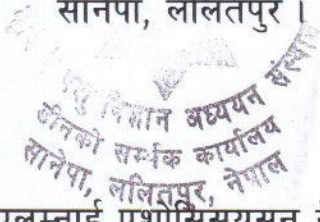 सानेपा, ललितपुर ।
विज्ञान अध्ययन संस्थान
डीनको सम्पर्क कार्यालय
सानेपा, ललितपुर, नेपाल